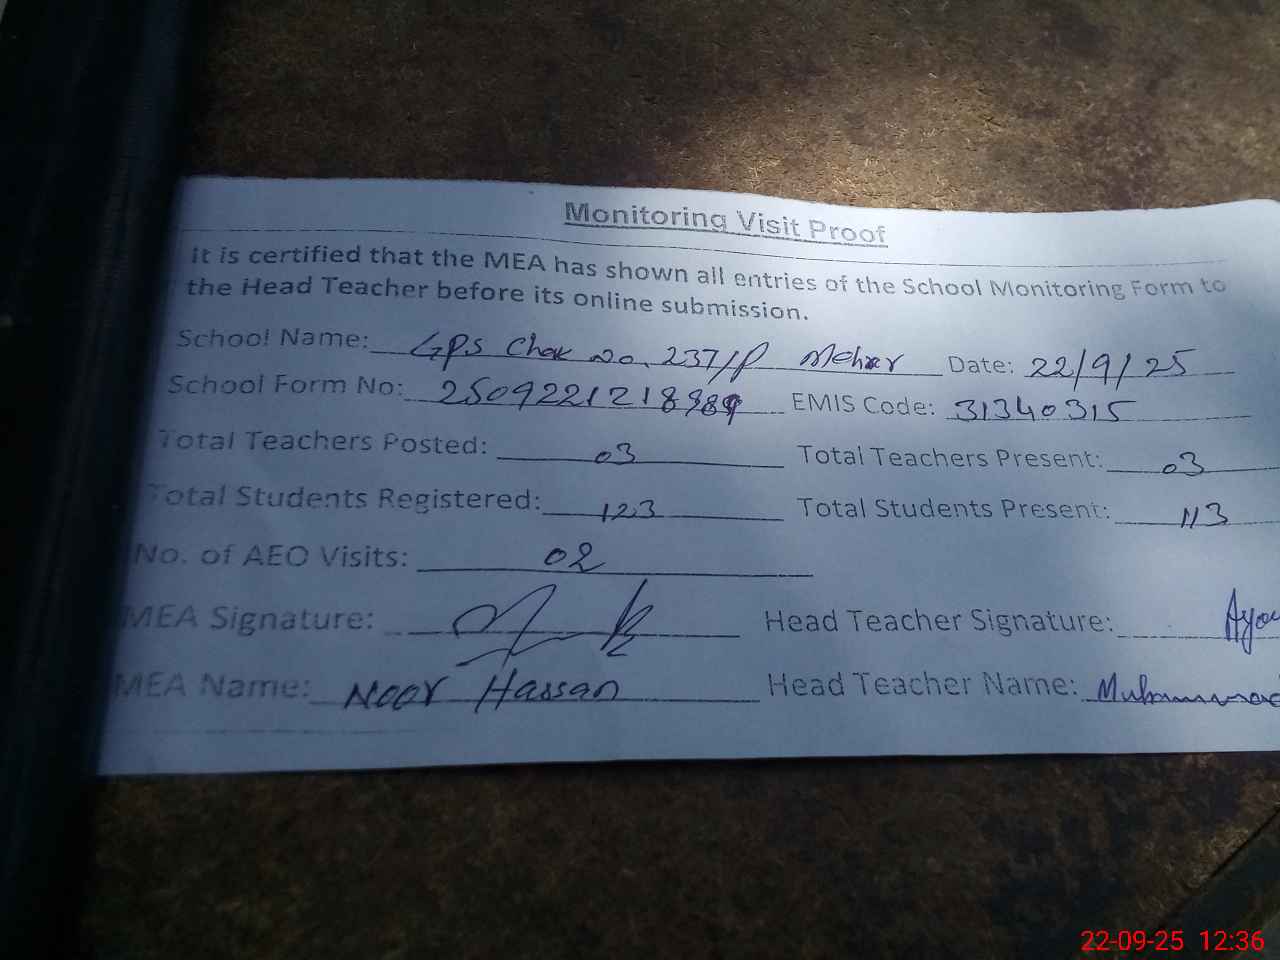 Monitoring Visit Proof
it is certified that the MEA has shown all entries of the School Monitoring Form to
the Head Teacher before its online submission.
School Name: GPS Chak no. 237/P Date: 22/9/25
School Form No: EMIS Code: 31340315
Total Teachers Posted: 03 Total Teachers Present: 03
Total Students Registered: 123 Total Students Present: 113
No. of AEO Visits: 02
MEA Signature: Head Teacher Signature:
MEA Name: Noor Hassan Head Teacher Name:
22-09-25 12:36